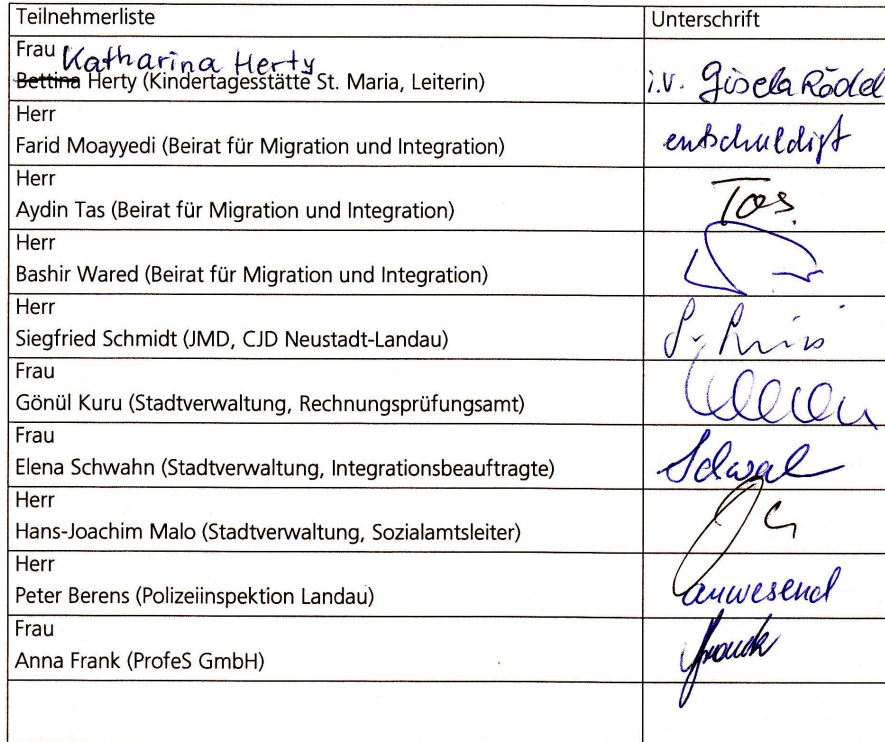 Teilnehmerliste Unterschrift
Frau Katharina Herty
Bettina Herty (Kindertagesstätte St. Maria, Leiterin) i.V. Gisela Rödel
Herr
Farid Moayyedi (Beirat für Migration und Integration) entschuldigt
Herr
Aydin Tas (Beirat für Migration und Integration) Tas.
Herr
Bashir Wared (Beirat für Migration und Integration)
Herr
Siegfried Schmidt (JMD, CJD Neustadt-Landau)
Frau
Gönül Kuru (Stadtverwaltung, Rechnungsprüfungsamt)
Frau
Elena Schwahn (Stadtverwaltung, Integrationsbeauftragte)
Herr
Hans-Joachim Malo (Stadtverwaltung, Sozialamtsleiter)
Herr
Peter Berens (Polizeiinspektion Landau) anwesend
Frau
Anna Frank (ProfeS GmbH)